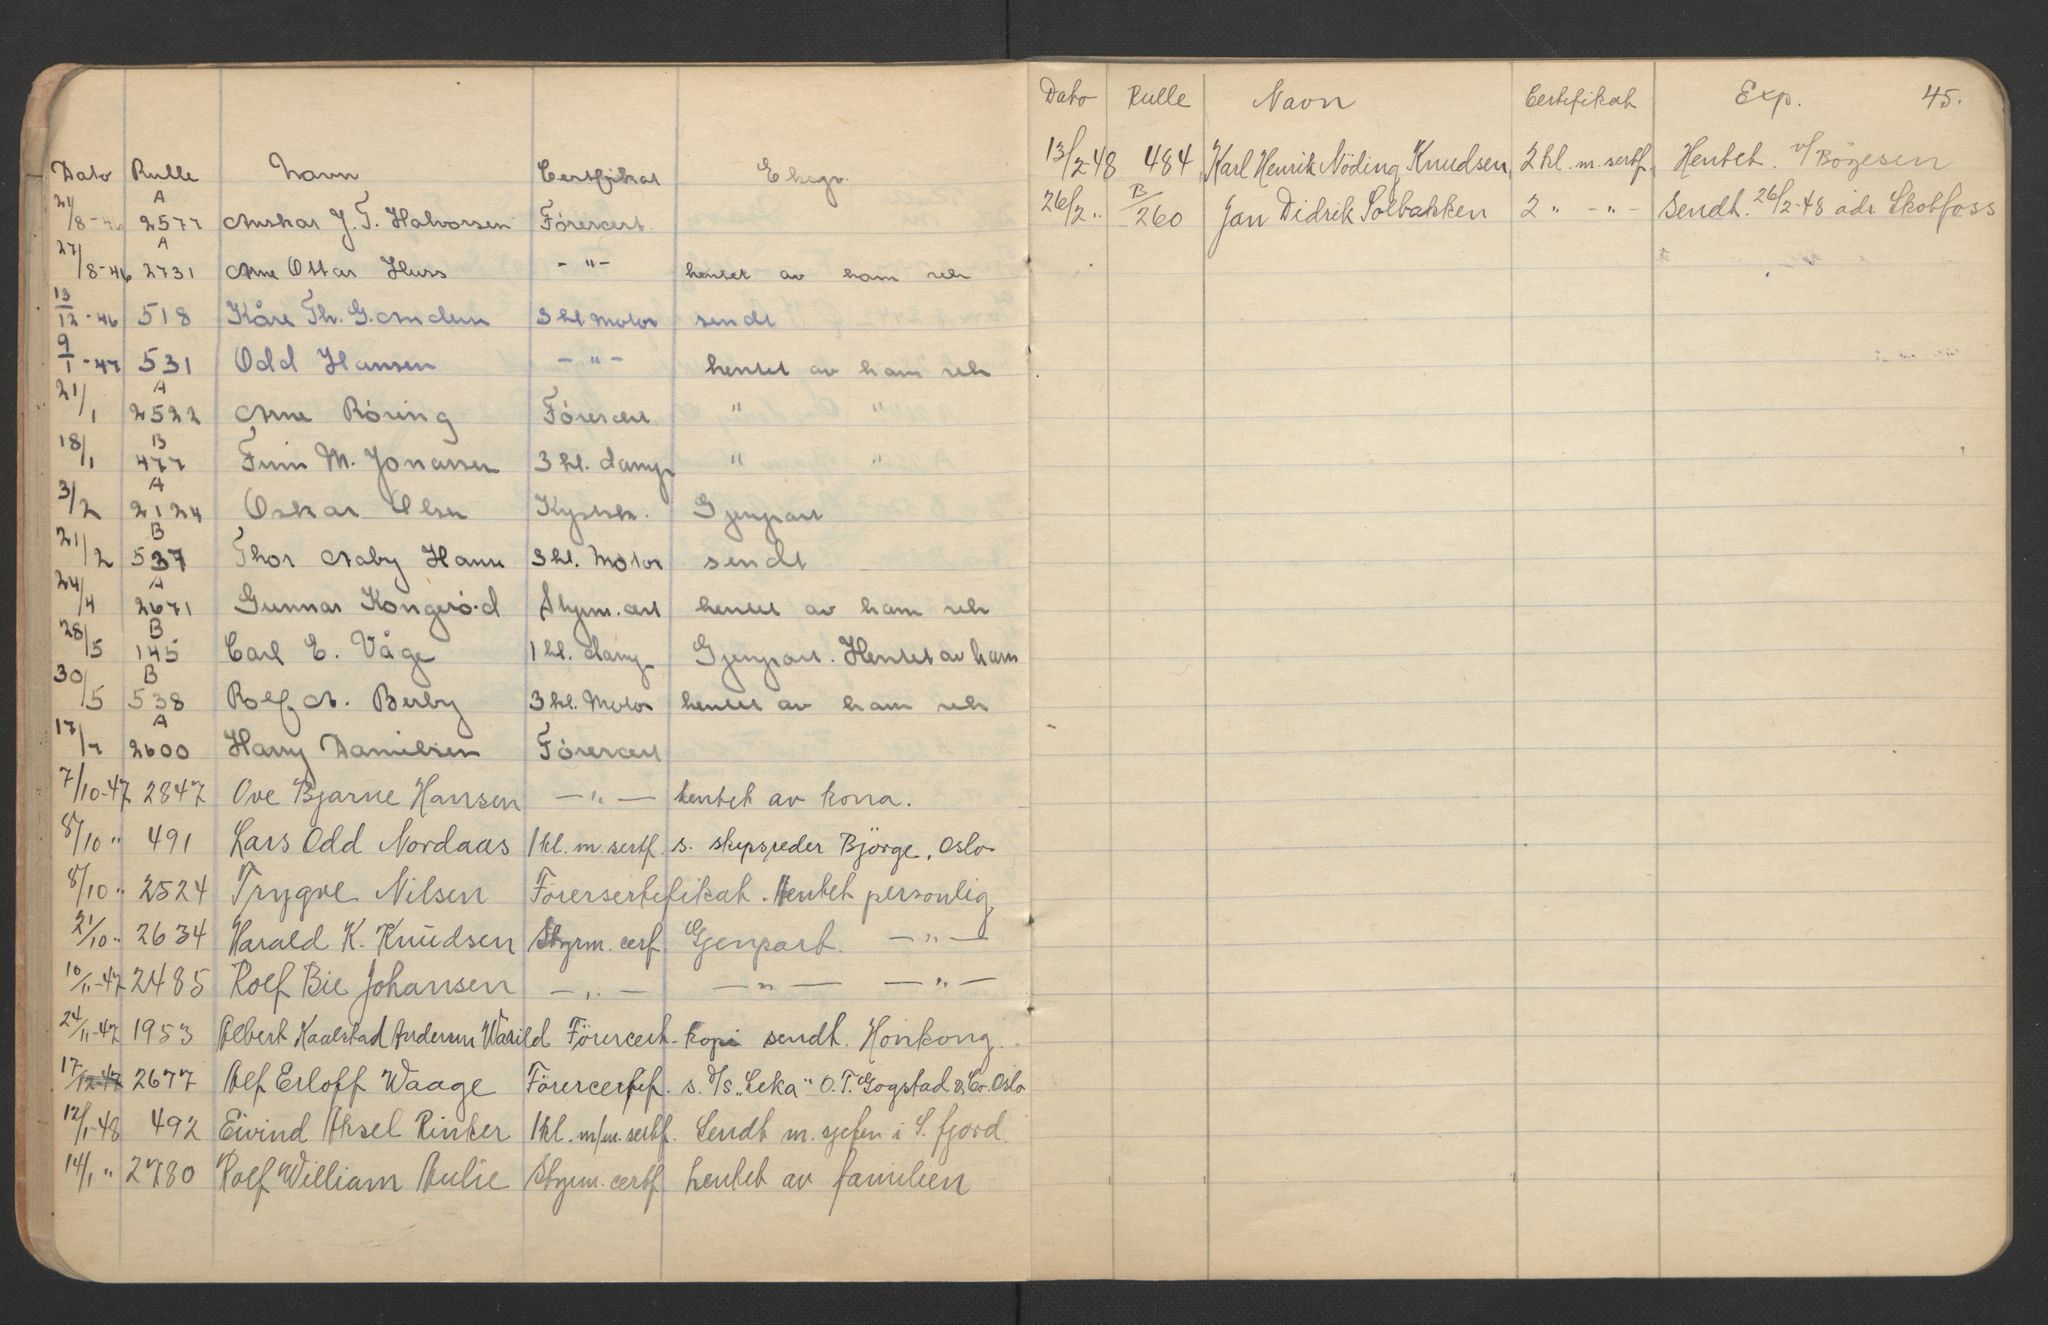 Dato Rulle Navn Certfikat Eksp.
21/8-46 A 2577 Anskar J. T. Halvorsen Førercert.
27/8-46 A 2731 Arne Ottar Huss - " - hentet av ham selv
13/12-46 518 Kåre Th. G. Andersen 3 kl Motor sendt
9/1-47 531 Odd Hansen - " - hentet av ham selv
21/1 A 2522 Arne Röring Förercert " "
18/1 B 477 Finn M. Jonassen 3 kl. damp " "
3/2 A 2124 Oskar Olsen Kystsk. Gjenpart
21/2 B 537 Thor Aaby Hansen 3 kl. Motor sendt
24/4 A 2671 Gunnar Kongeröd Styrm. cert hentet av ham selv
28/5 B 145 Carl E. Våge 1 kl. damp Gjenpart. Hentet av ham
30/5 B 538 Rolf A. Berby 3 kl. Motor hentet av ham selv
17/7 A 2600 Harry Danielsen Förercert
7/10-47 2847 Ove Bjarne Hansen - " - hentet av kona.
8/10 " 491 Lars Odd Nordaas 1 kl. m. sertf. s. skipsreder Björge, Oslo
8/10 " 2524 Trygve Nilsen Förersertifikat. Hentet personlig
21/10 " 2634 Harald K. Knudsen Styrm. cert. Gjenpart. - " -
10/11-47 2485 Rolf Bie Johansen - " - - " - - " -
24/11-47 1953 Albert Kaalstad Andersen Warild Förercert. kopi sendt. Honkong.
17/12-47 2677 Alf Erloff Waage Förercertf. s. D/s. "Leka" O. T. Gogstad & Co. Oslo
12/1-48 492 Eivind Aksel Rinker 1 kl. m/m. sertf. Sendt m. sjefen i S. fjord.
14/1 " 2780 Rolf William Aulie Styrm. certf. hentet av familien
Dato Rulle Navn Certifikat Exp. 45.
13/2-48 484 Karl Henrik Nöding Knudsen 2 kl. m. sertf. Hentet. v/ Bögesen
26/2 " B/260 Jan Didrik Solbakken 2 " - " - Sendt. 26/2-48 adr Skotfoss